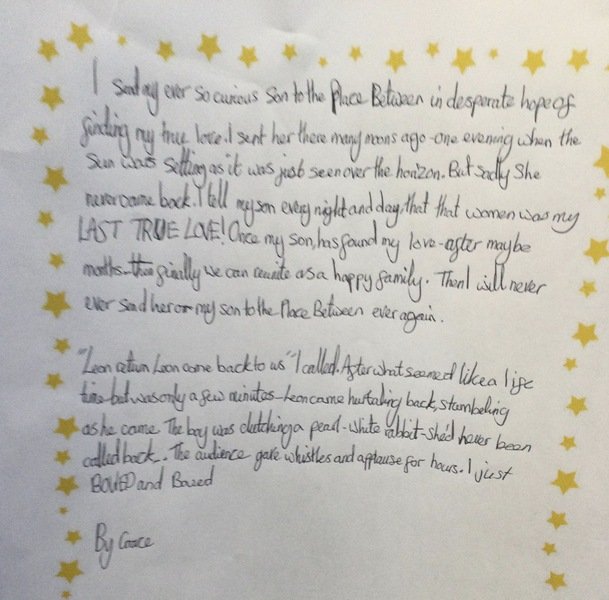 I send my ever so curious son to the Place Between in desperate hope of
finding my true love. I sent her there many moons ago - one evening when the
Sun was setting as it was just seen over the horizon. But sadly she
never came back. I tell my son every night and day, that that women was my
LAST TRUE LOVE! Once my son, has found my love - after maybe
months - then finally we can reunite as a happy family. Then I will never
ever send her or my son to the Place Between ever again.
"Leon return Leon come back to us" I called. After what seemed like a life
time - but was only a few minutes - Leon came hurtaling back, stumbeling
as he came. The boy was clutching a pearl-white rabbit - she'd never been
called back. The audience gave whistles and applause for hours. I just
BOWED and Bowed
By Grace